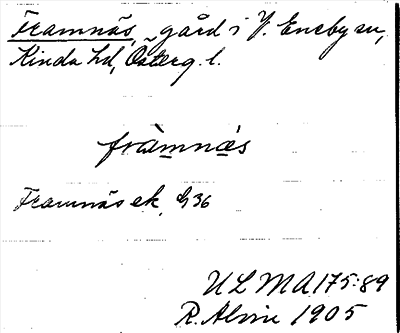 Framnäs, gård i V. Eneby sn,
Kinda hd, Österg. l.
fràmnæ̀s
Framnäs ek, G 36
ULMA 175:89
R. Alvin 1905